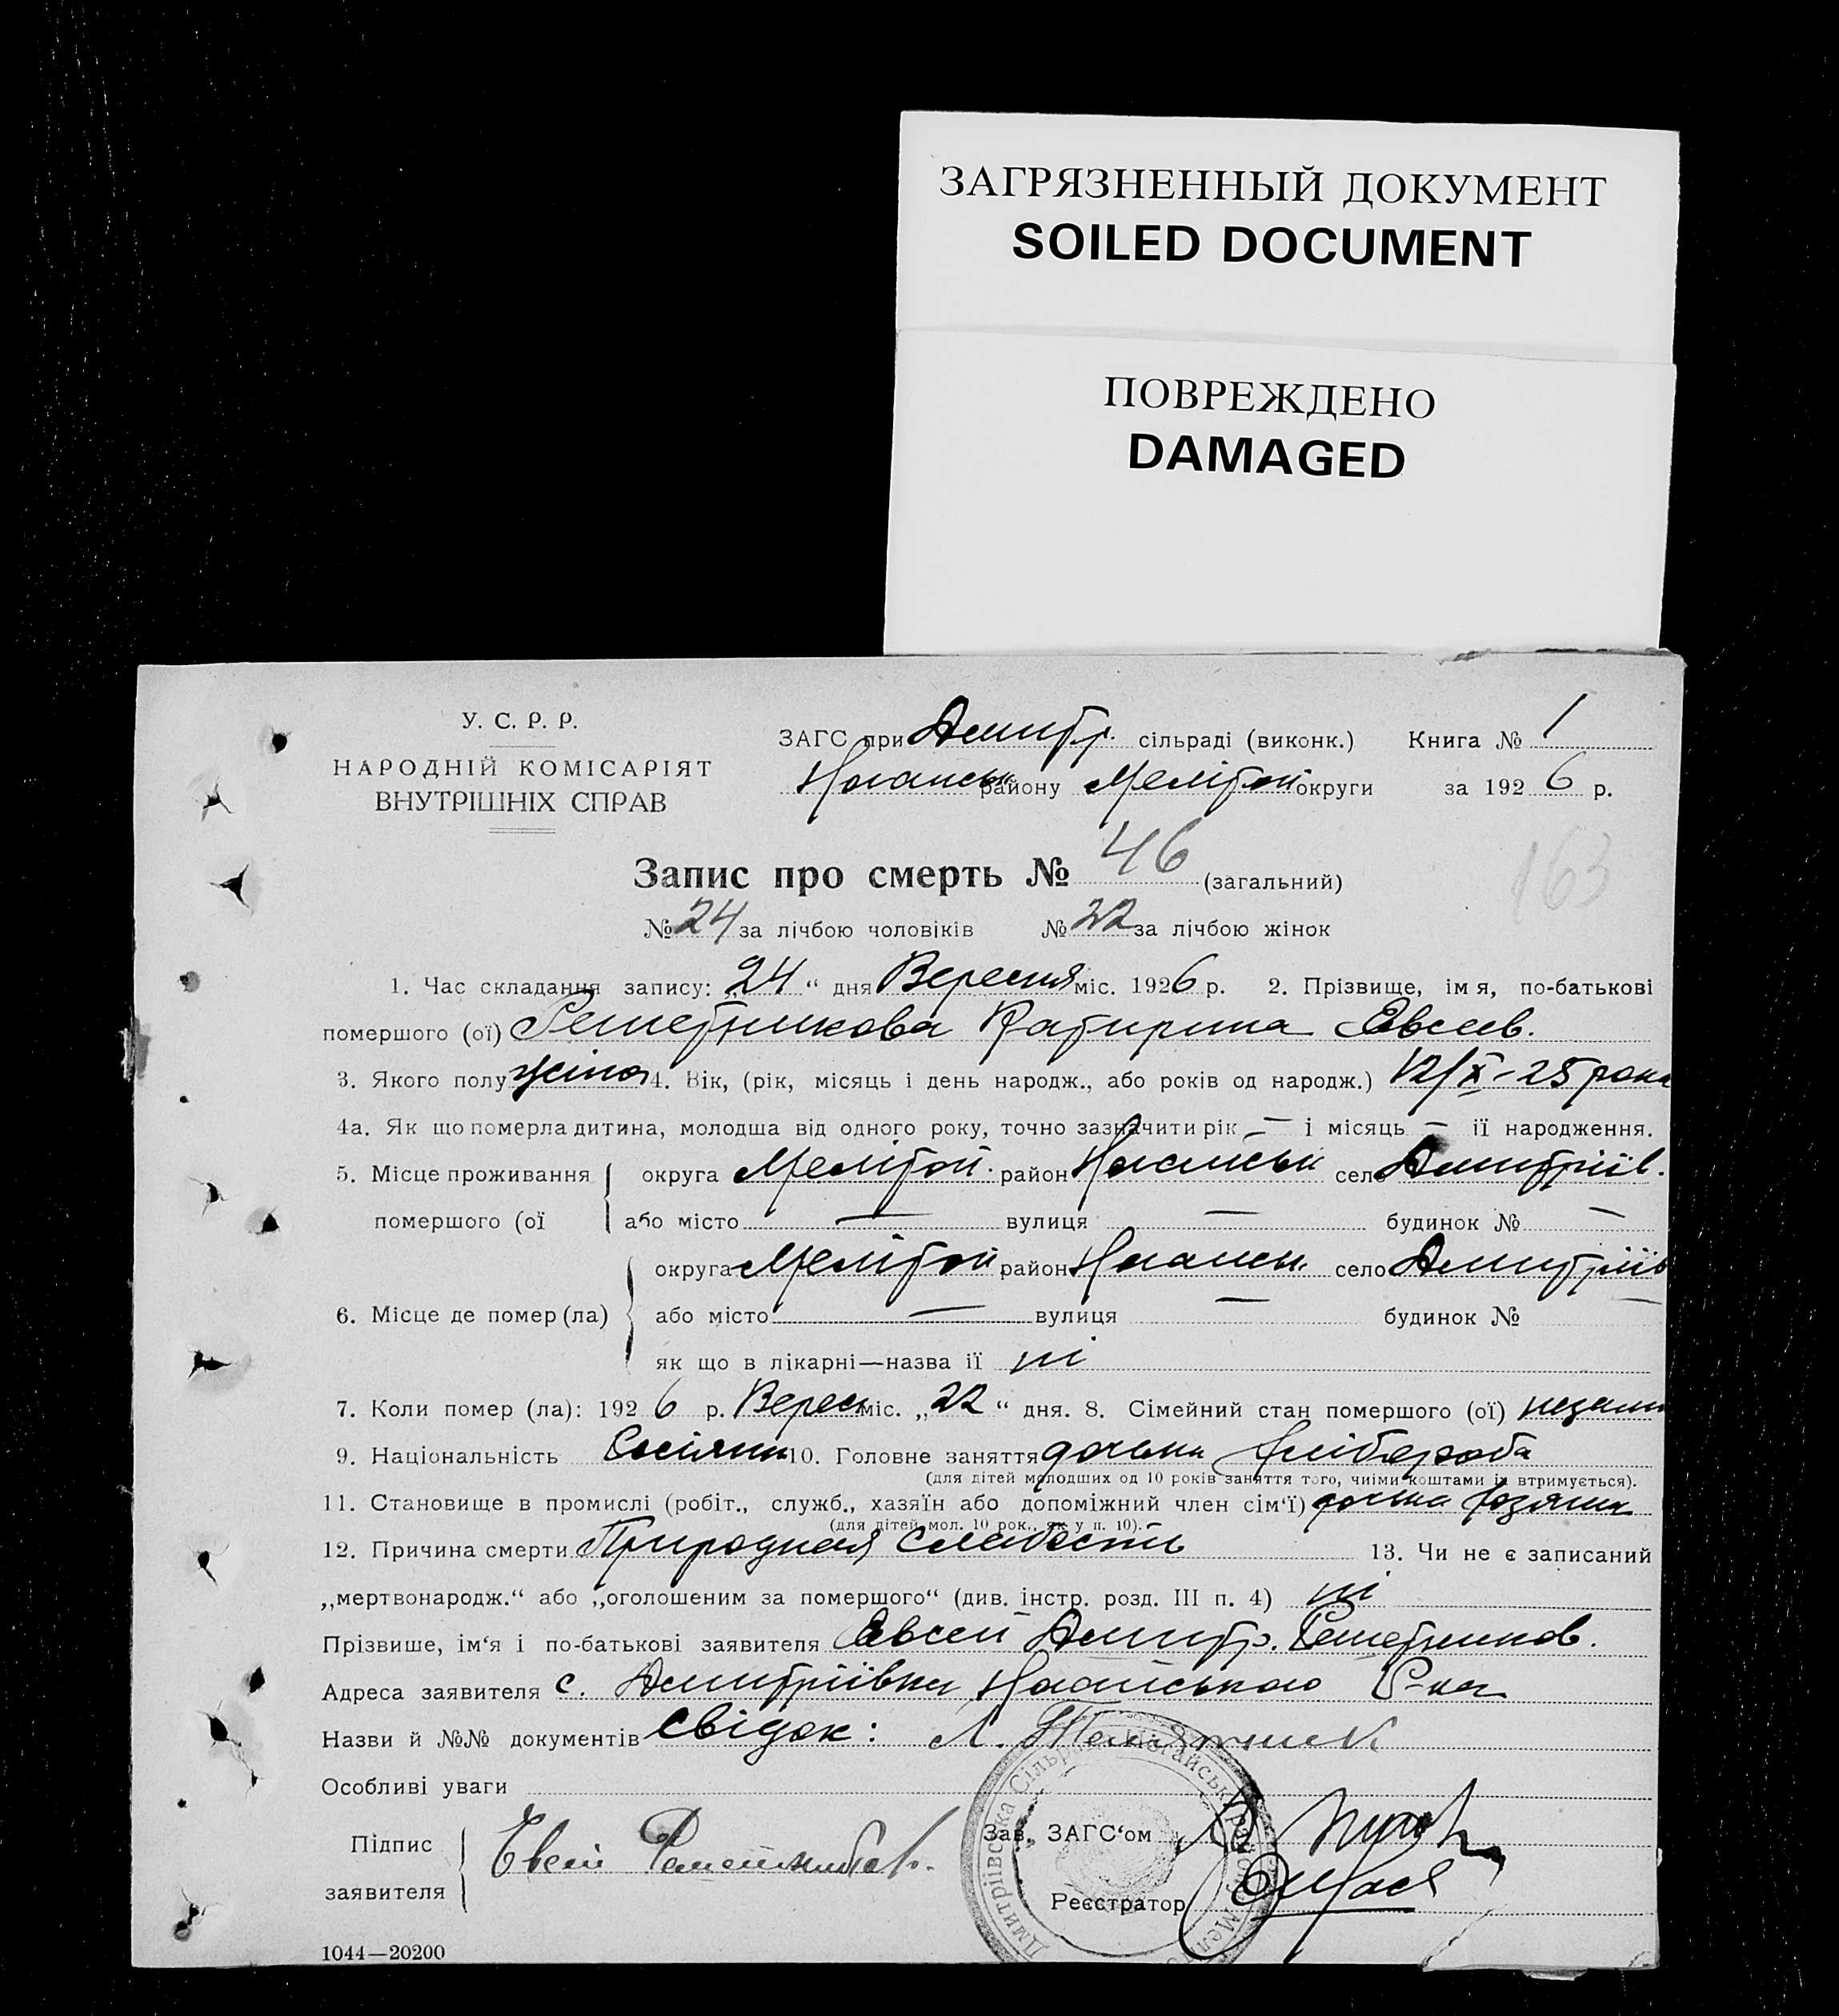 ЗАГРЯЗНЕННЫЙ ДОКУМЕНТ
SOILED DOCUMENT
ПОВРЕЖДЕНО
DAMAGED
У. С. Р. Р.
НАРОДНІЙ КОМІСАРІЯТ
ВНУТРІШНІХ СПРАВ
ЗАГС при Дмитр. сільраді (виконк.) Книга № 1
Ногайськ району Мелітоп округи за 1926 р.
163
Запис про смерть № 46 (загальний)
№ 24 за лічбою чоловіків № 22 за лічбою жінок
1. Час складання запису: „24“ дня Вересня міс. 1926 р. 2. Прізвище, ім я, по-батькові
помершого (ої) Решетникова Катирина Евсеев.
3. Якого полу жіноч 4. Вік, (рік, місяць і день народж., або років од народж.) 12/X-25 рока
4а. Як що померла дитина, молодша від одного року, точно зазначити рік — і місяць — ії народження.
5. Місце проживання помершого (ої
округа Мелітоп. район Ногайськ село Дмитріїв.
або місто — вулиця — будинок № —
6. Місце де помер (ла)
округа Мелітоп район Ногайськ. село Дмитріїв
або місто — вулиця — будинок № —
як що в лікарні—назва ії ні
7. Коли помер (ла): 1926 р. Верес міс. „22“ дня. 8. Сімейний стан помершого (ої) незам
9. Національність 10. Головне заняття дочька хлібороба
(для дітей молодших од 10 років заняття того, чиїми коштами їх втримується).
11. Становище в промислі (робіт., служб., хазяїн або допоміжний член сім‘ї) дочька хозяина
(для дітей мол. 10 рок., як у п. 10).
12. Причина смерти Природная слабость 13. Чи не є записаний
„мертвонародж.“ або „оголошеним за помершого“ (див. інстр. розд. III п. 4) ні
Прізвише, ім‘я і по-батькові заявителя Евсей Дмитр. Решетников.
Адреса заявителя с. Дмитріївка Ногайського Р-на
Назви й №№ документів Свідок: Л.
Особливі уваги
Підпис заявителя Евсей
Зав. ЗАГС‘ом
Реєстратор
Дмитріївська Сільрада Ногайськ. район. Меліто
1044—20200